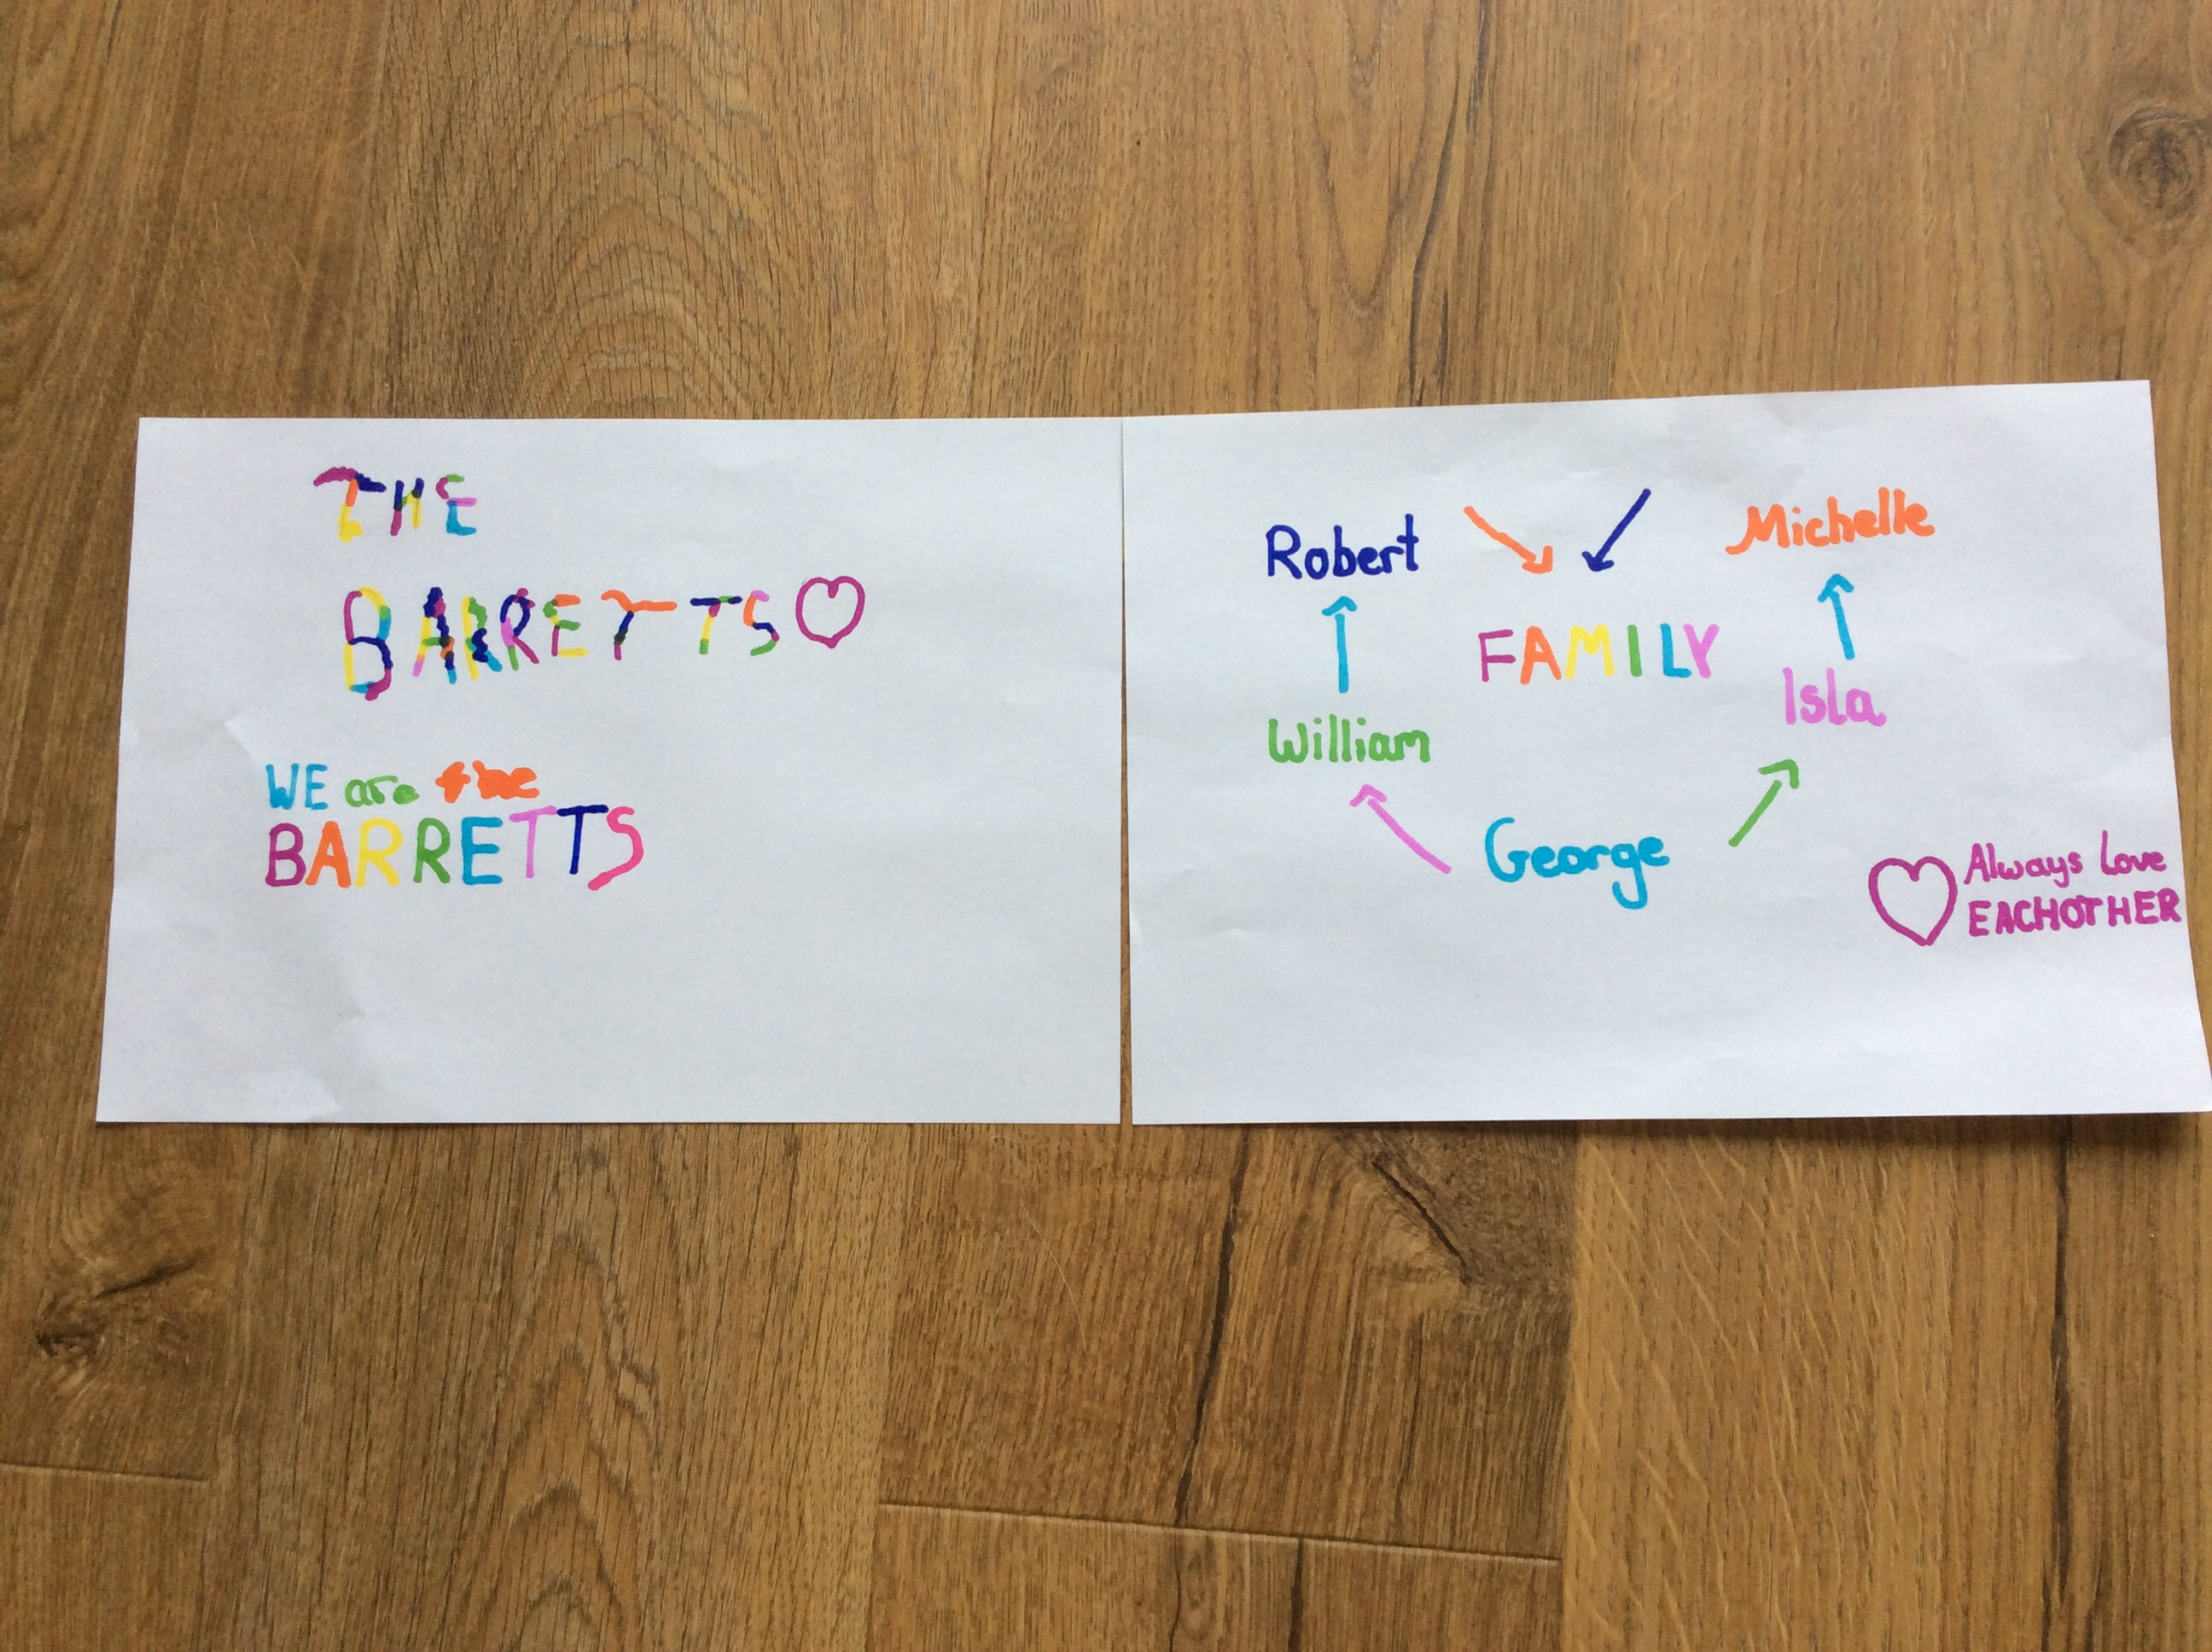 THE
BARRETTS
WE are the
BARRETTS
Robert
Michelle
FAMILY
William
Isla
George
Always Love
EACHOTHER